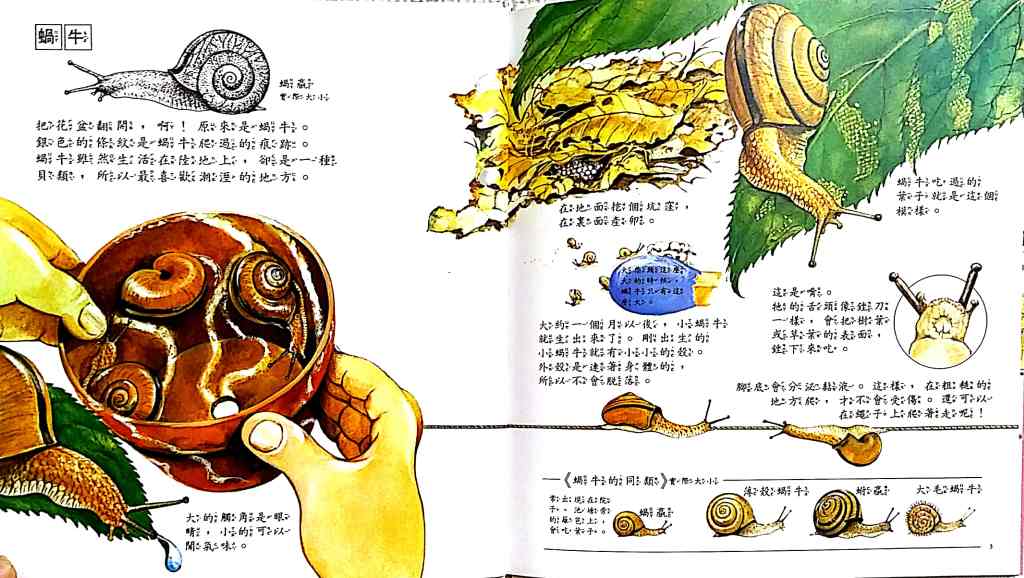 蝸牛
蝸蟲
實際大小
把花盆翻開，啊！原來是蝸牛。
銀色的條紋是蝸牛爬過的痕跡。
蝸牛雖然生活在陸地上，卻是一種
貝類，所以最喜歡潮溼的地方。
大的觸角是眼
睛，小的可以
聞氣味。
在地面挖個坑窪，
在裏面產卵。
蝸牛吃過的
葉子就是這個
模樣。
大約一個月以後，小蝸牛
就生出來了。剛出生的
小蝸牛就有小小的殼。
外殼是連著身體的，
所以不會脫落。
這是嘴。
牠的舌頭像銼刀
一樣，會把樹葉
或草葉的表面，
銼下來吃。
腳底會分泌黏液。這樣，在粗糙的
地方爬，才不會受傷。還可以
在繩子上爬著走呢！
《蝸牛的同類》實際大小
常出現在院
的
會吃葉子。
蝸蟲
薄殼蝸牛
大毛蝸牛
3